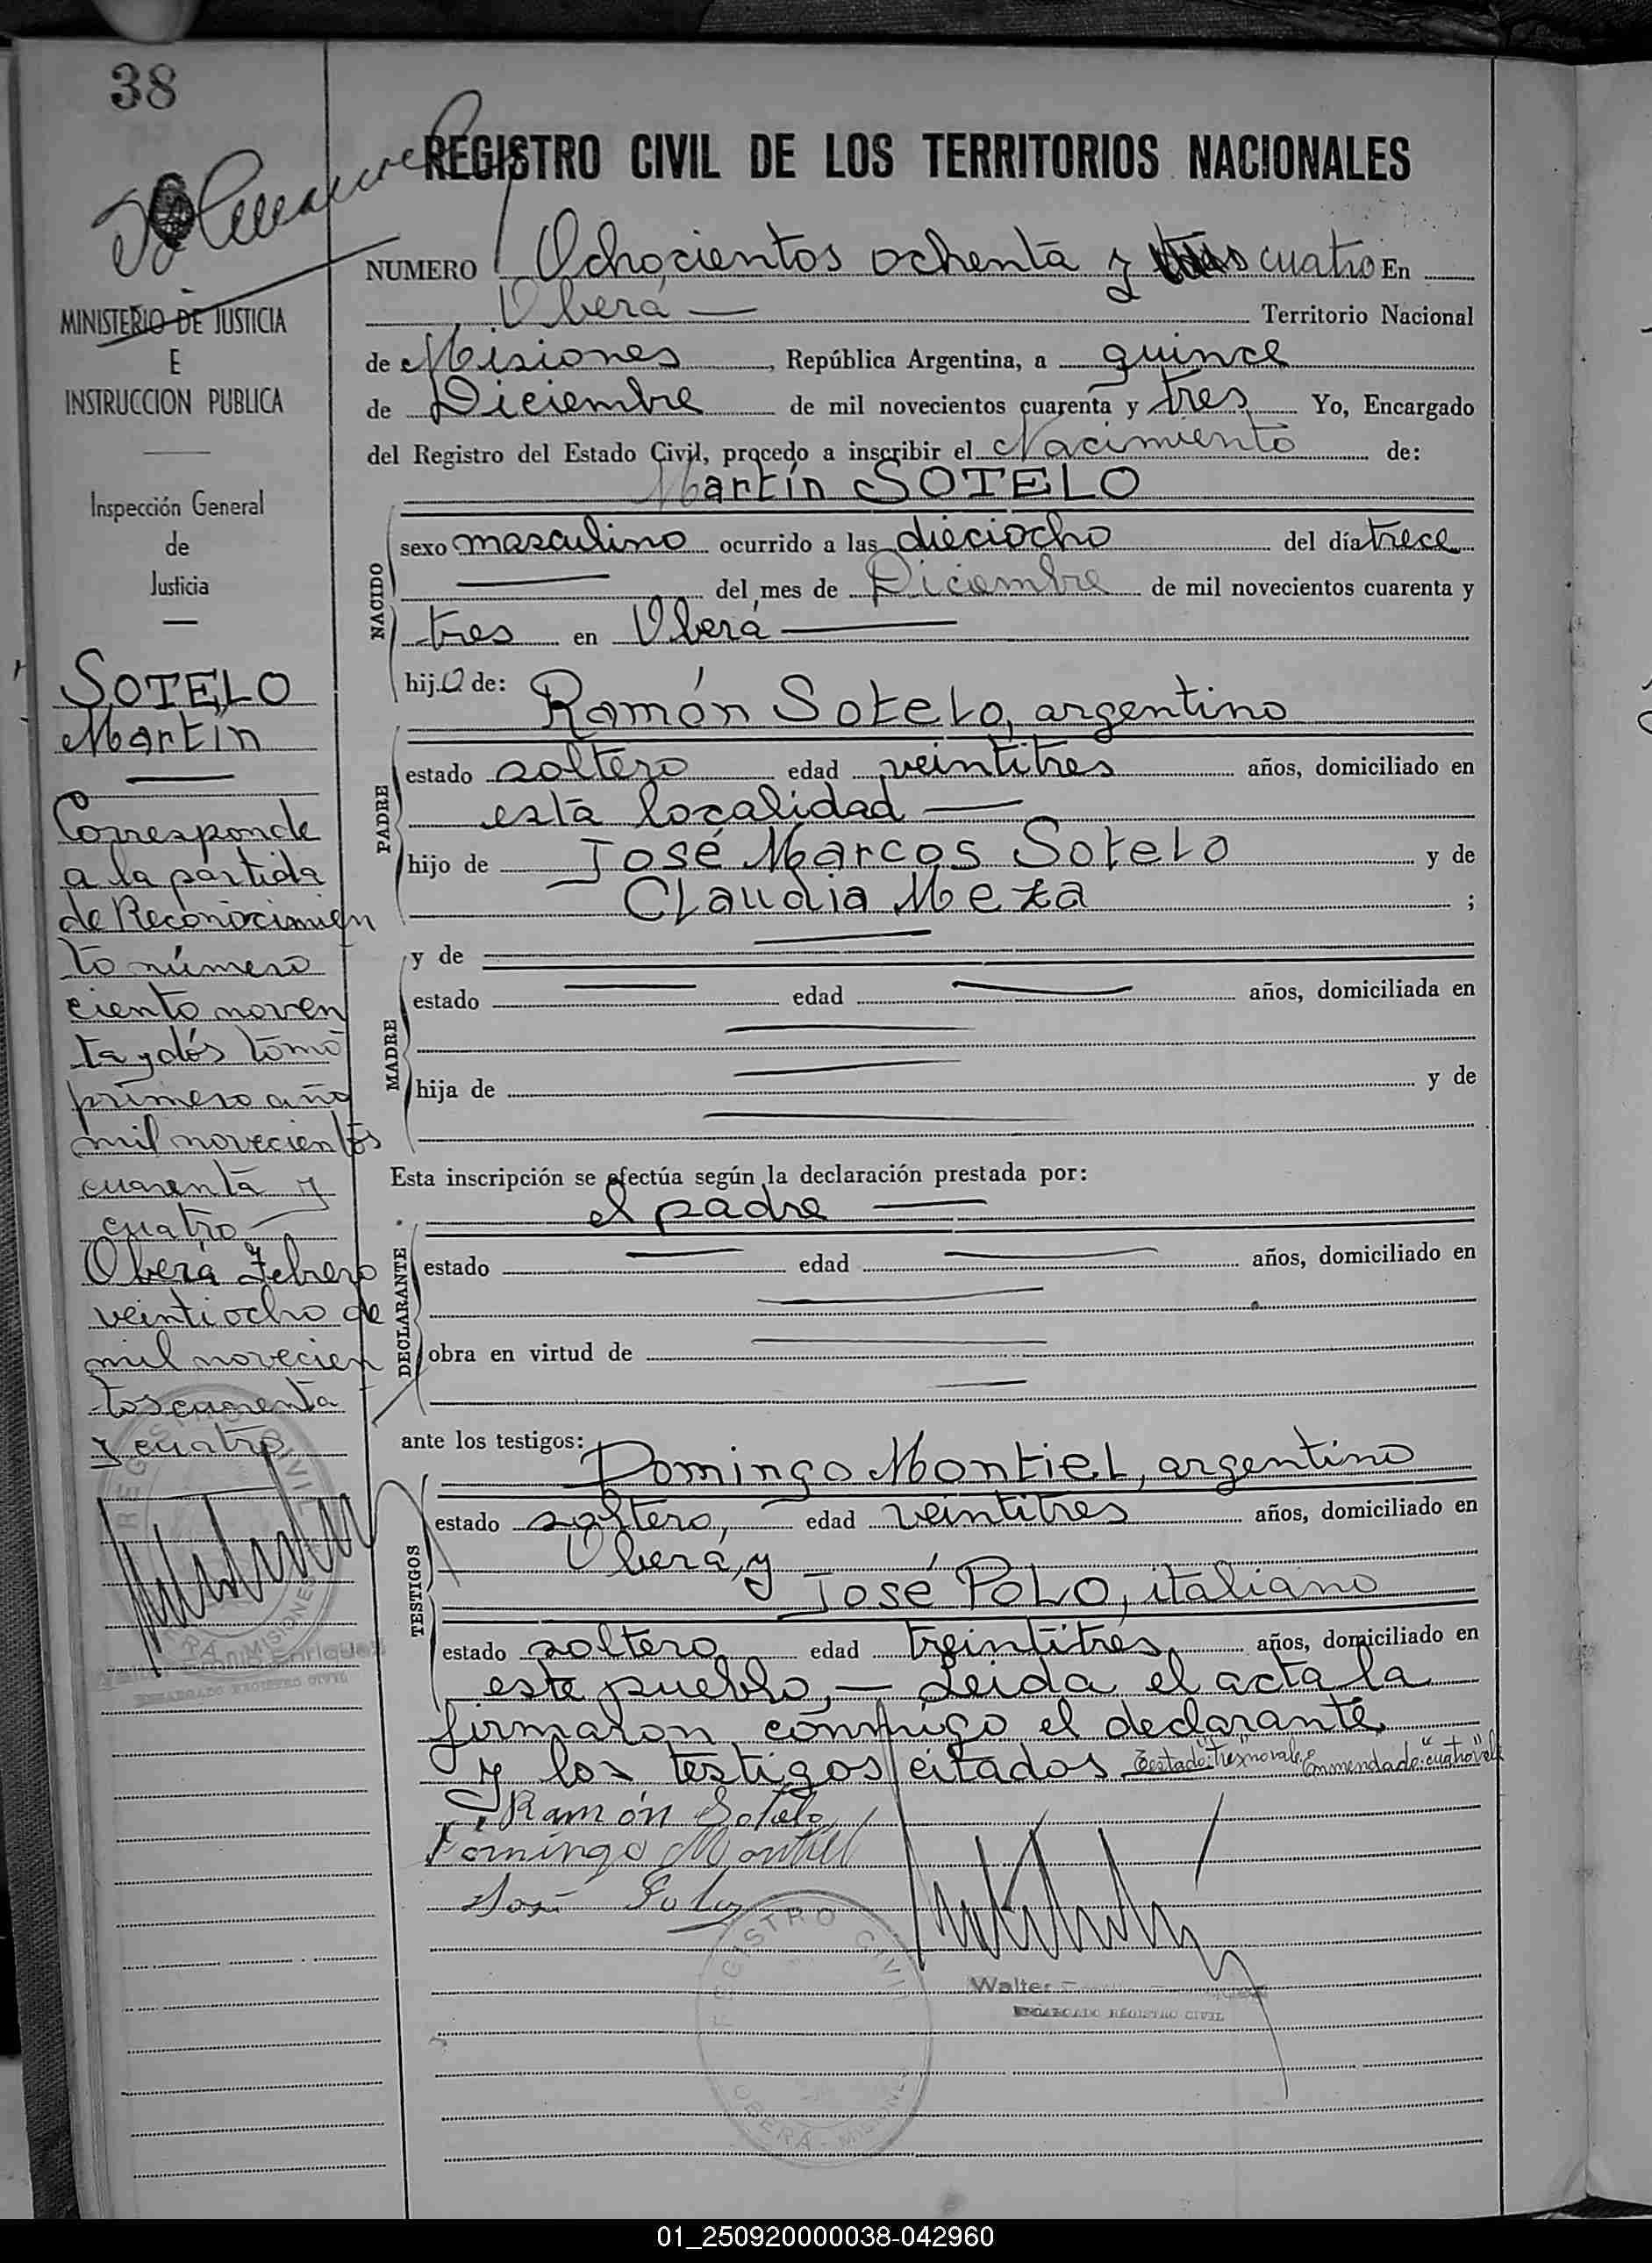 38
REGISTRO CIVIL DE LOS TERRITORIOS NACIONALES
MINISTERIO DE JUSTICIA
E
INSTRUCCION PUBLICA
Inspección General
de
Justicia
SOTELO
Martín
Corresponde
a la partida
de Reconocimien
to número
ciento noven
ta y dós tomo
primero año
mil novecientos
cuarenta y
cuatro
Oberá Febrero
veintiocho de
mil novecien
tos cuarenta
y cuatro
REGISTRO CIVIL
OBERÁ - MISIONES
Enriquez
ENCARGADO REGISTRO CIVIL
NUMERO Ochocientos ochenta y tres cuatro En
Oberá
Territorio Nacional
de Misiones, República Argentina, a quince
de Diciembre de mil novecientos cuarenta y tres Yo, Encargado
del Registro del Estado Civil, procedo a inscribir el Nacimiento de:
Martín SOTELO
NACIDO
sexo masculino ocurrido a las dieciocho del día trece
del mes de Diciembre de mil novecientos cuarenta y
tres en Oberá
hijo de:
Ramón Sotelo, argentino
PADRE
estado soltero edad veintitres años, domiciliado en
esta localidad
hijo de José Marcos Sotelo y de
Claudia Meza ;
MADRE
y de
estado edad años, domiciliada en
hija de y de
Esta inscripción se efectúa según la declaración prestada por:
el padre
DECLARANTE
estado edad años, domiciliado en
obra en virtud de
ante los testigos:
Domingo Montiel, argentino
TESTIGOS
estado soltero, edad veintitres años, domiciliado en
Oberá, y
José Polo, italiano
estado soltero edad treintitrés, años, domiciliado en
este pueblo, — Leida el acta la
firmaron conmigo el declarante
y los testigos citados Testado: "tres" no vale, Enmendado: "cuatro" vale
Ramón Sotelo
Domingo Montiel
José Polo
REGISTRO CIVIL
OBERÁ - MISIONES
Walter
ENCARGADO REGISTRO CIVIL
01_250920000038-042960